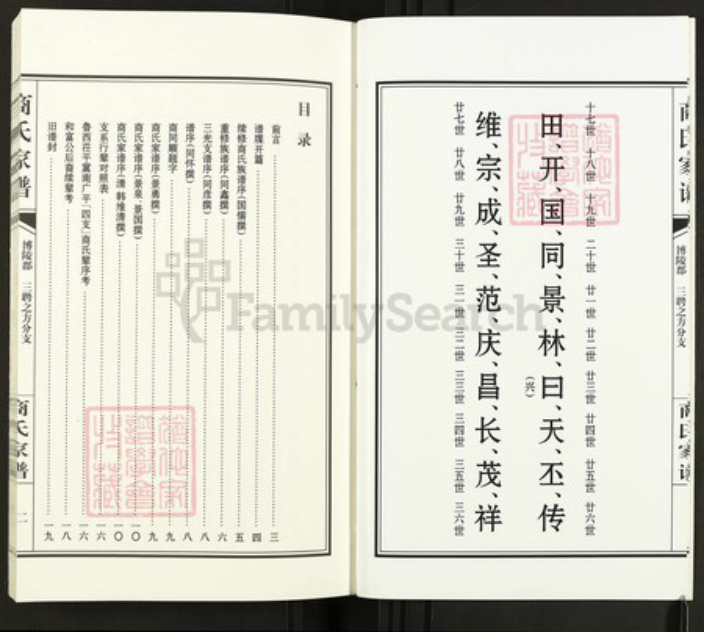 商氏家谱
博陵郡 三聘之方分支
商氏家谱
十七世 十八世 十九世 二十世 廿一世 廿二世 廿三世 廿四世 廿五世 廿六世
田、开、国、同、景、林、曰、天、丕、传
(兴)
维、宗、成、圣、范、庆、昌、长、茂、祥
廿七世 廿八世 廿九世 三十世 三一世 三二世 三三世 三四世 三五世 三六世
目录
前言 三
谱牒开篇 四
续修商氏族谱序(国儒撰) 五
重修族谱序(同鑫撰) 六
三光支谱序(同彦撰) 八
谱序(同怀撰) 八
商同顺题字 九
商氏家谱序(景勇撰) 九
商氏家谱序(景泉、景国撰) 一〇
商氏家谱序(清 韩维清撰) 一〇
支系行辈对照表 一六
鲁西茌平冀南广平「四支」商氏辈序考 一六
和富公后裔续辈考 一八
旧谱封 一九
商氏家谱
博陵郡 三聘之方分支
商氏家谱
FamilySearch